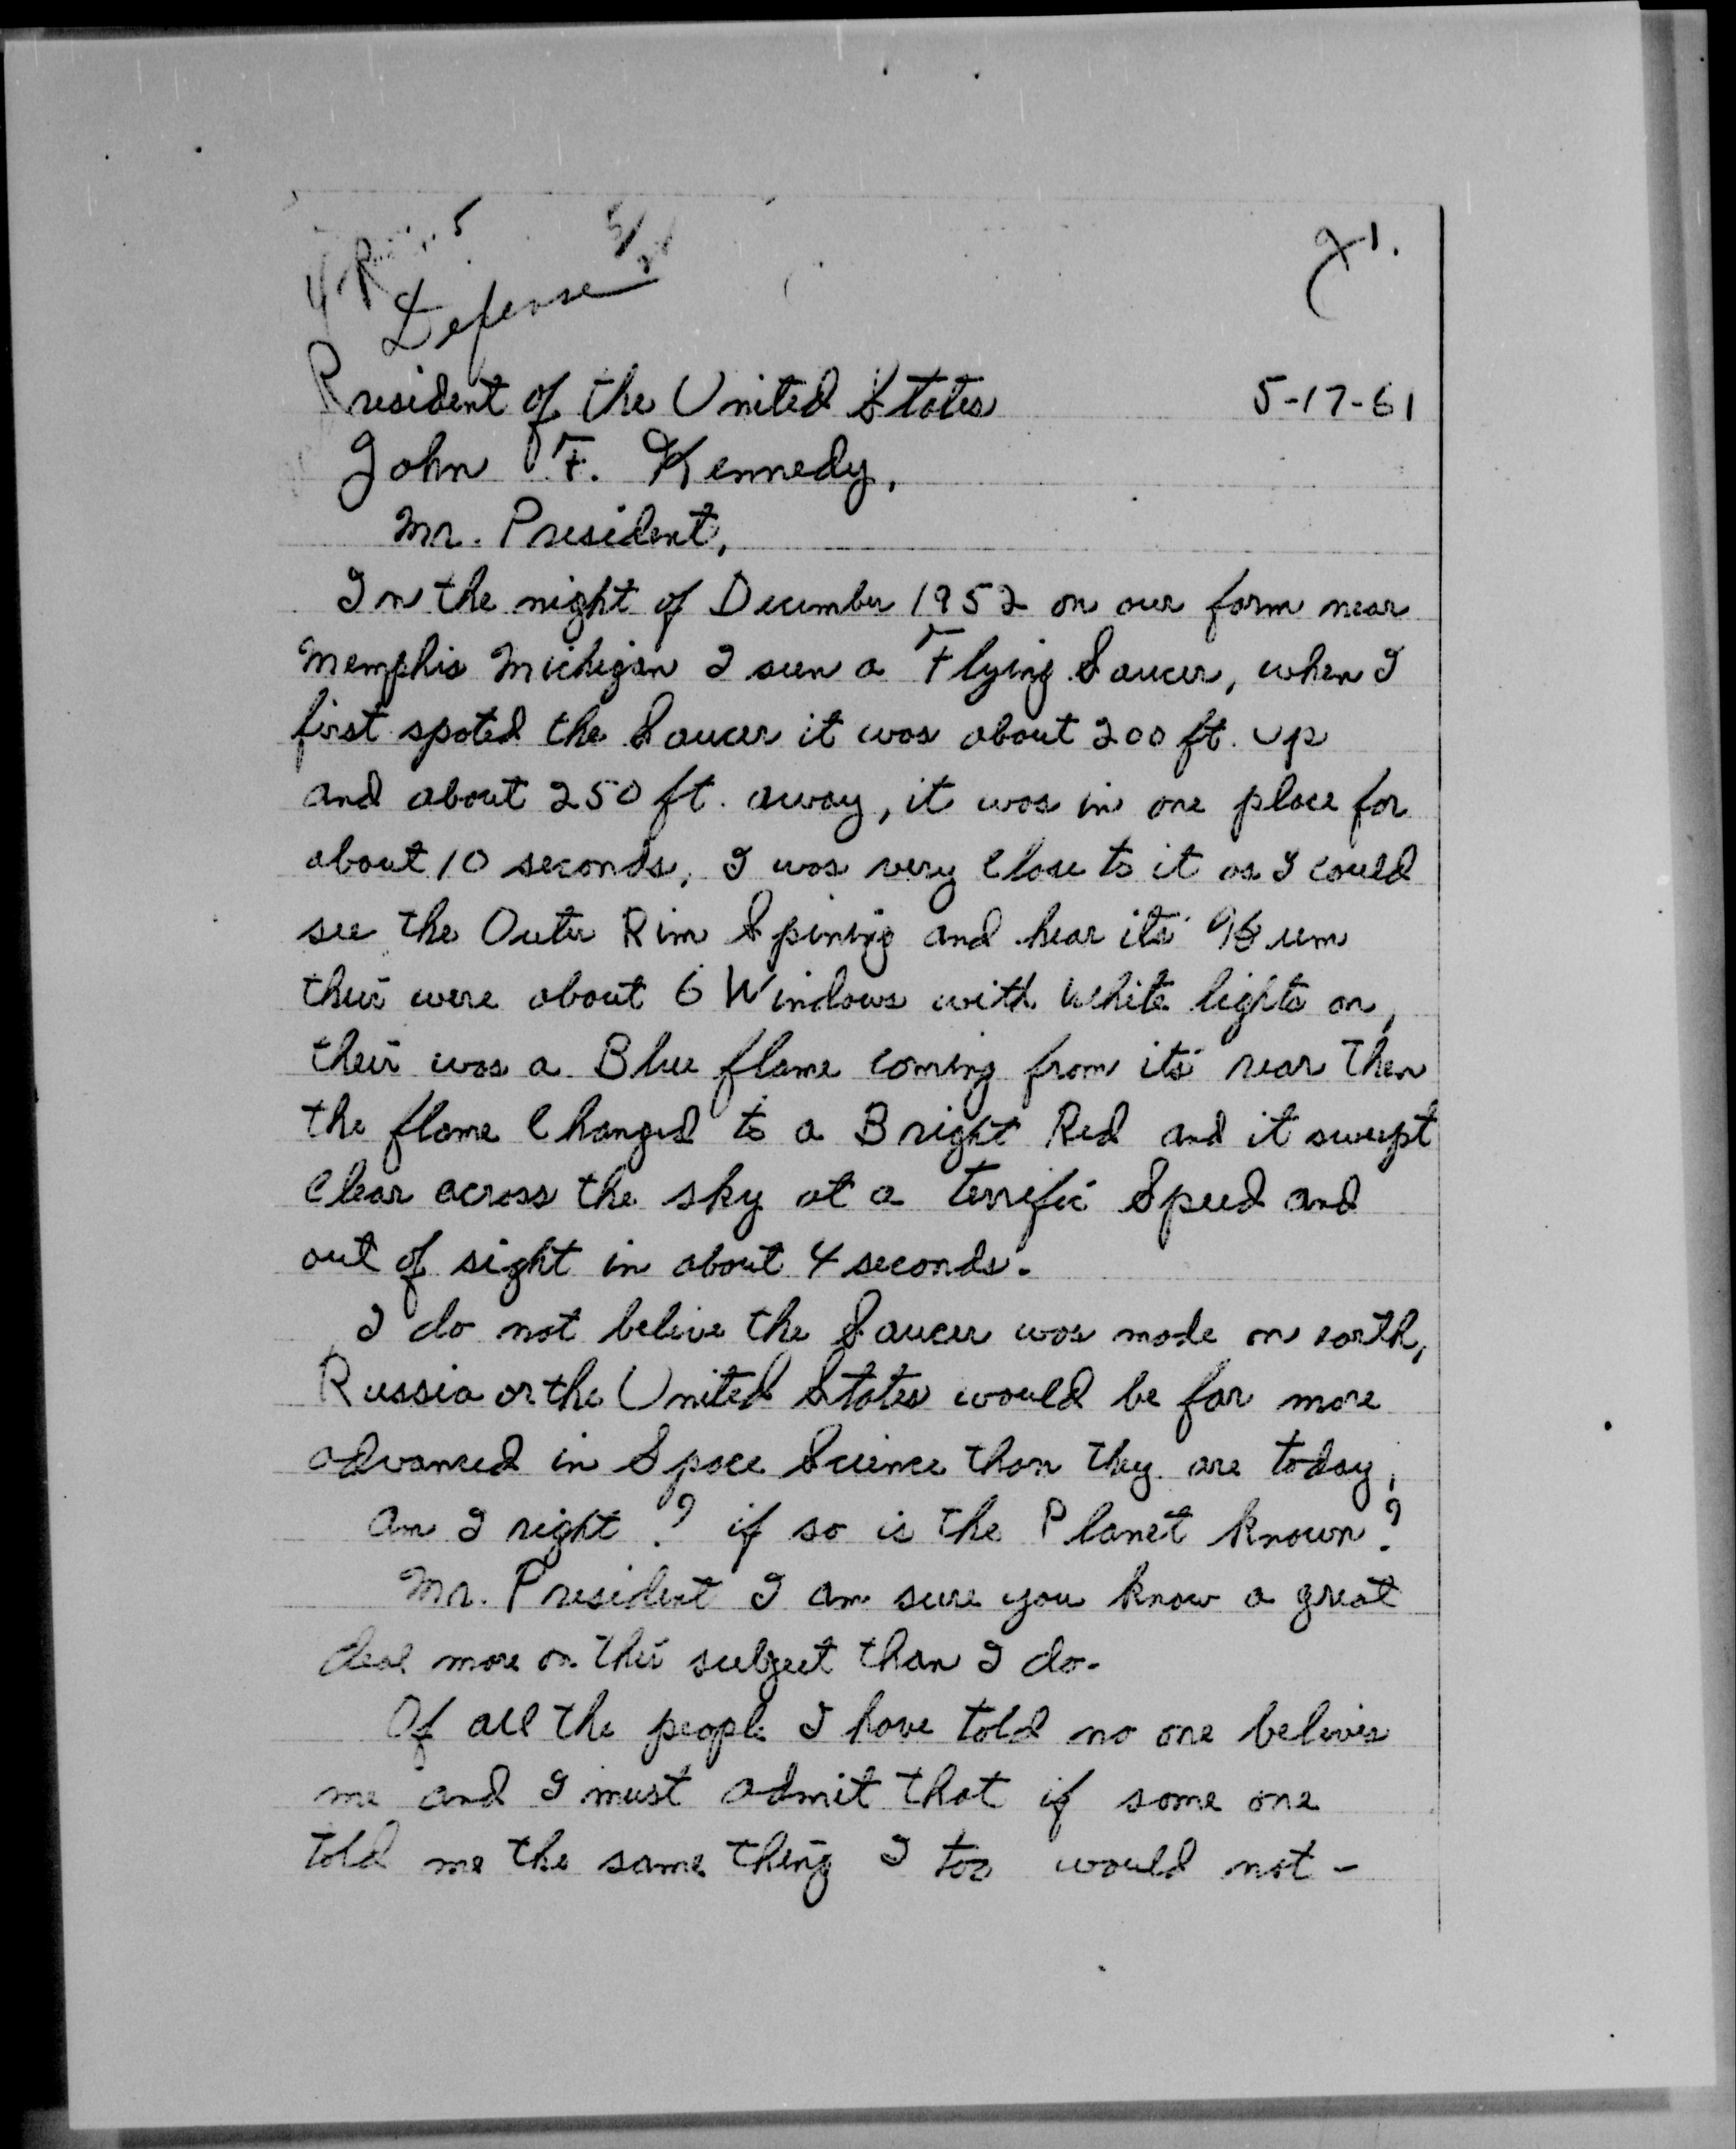 5
5/
1.
Defense
President of the United States 5-17-61
John F. Kennedy,
Mr. President,
In the night of December 1952 on our farm near
Memphis Michigan I seen a Flying Saucer, when I
first spoted the Saucer it was about 200 ft. up
and about 250 ft. away, it was in one place for
about 10 seconds, I was very close to it as I could
see the Outer Rim Spining and hear its Hum
their were about 6 Windows with White lights on,
their was a Blue flame coming from its rear Then
the flame Changed to a Bright Red and it swept
Clear across the sky at a terrific Speed and
out of sight in about 4 seconds.
I do not belive the Saucer was made on earth,
Russia or the United States would be far more
advanced in Space Science than they are today,
am I right? if so is the Planet known?
Mr. President I am sure you know a great
deal more on this subject than I do.
Of all the people I have told no one belives
me and I must admit that if some one
told me the same thing I too would not -